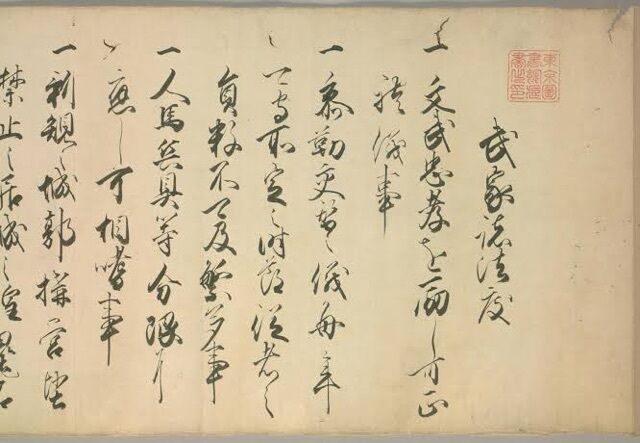 東京圖
書館藏
書之印
武家諸法度
一 文武忠孝を励し可正
礼儀事
一 参勤交替之儀毎年
可守所定之時節従者之
員数不可及繁多事
一 人馬兵具等分限に
應し可相嗜事
一 新規之城郭搆営堅
禁止之居城之隍壘石